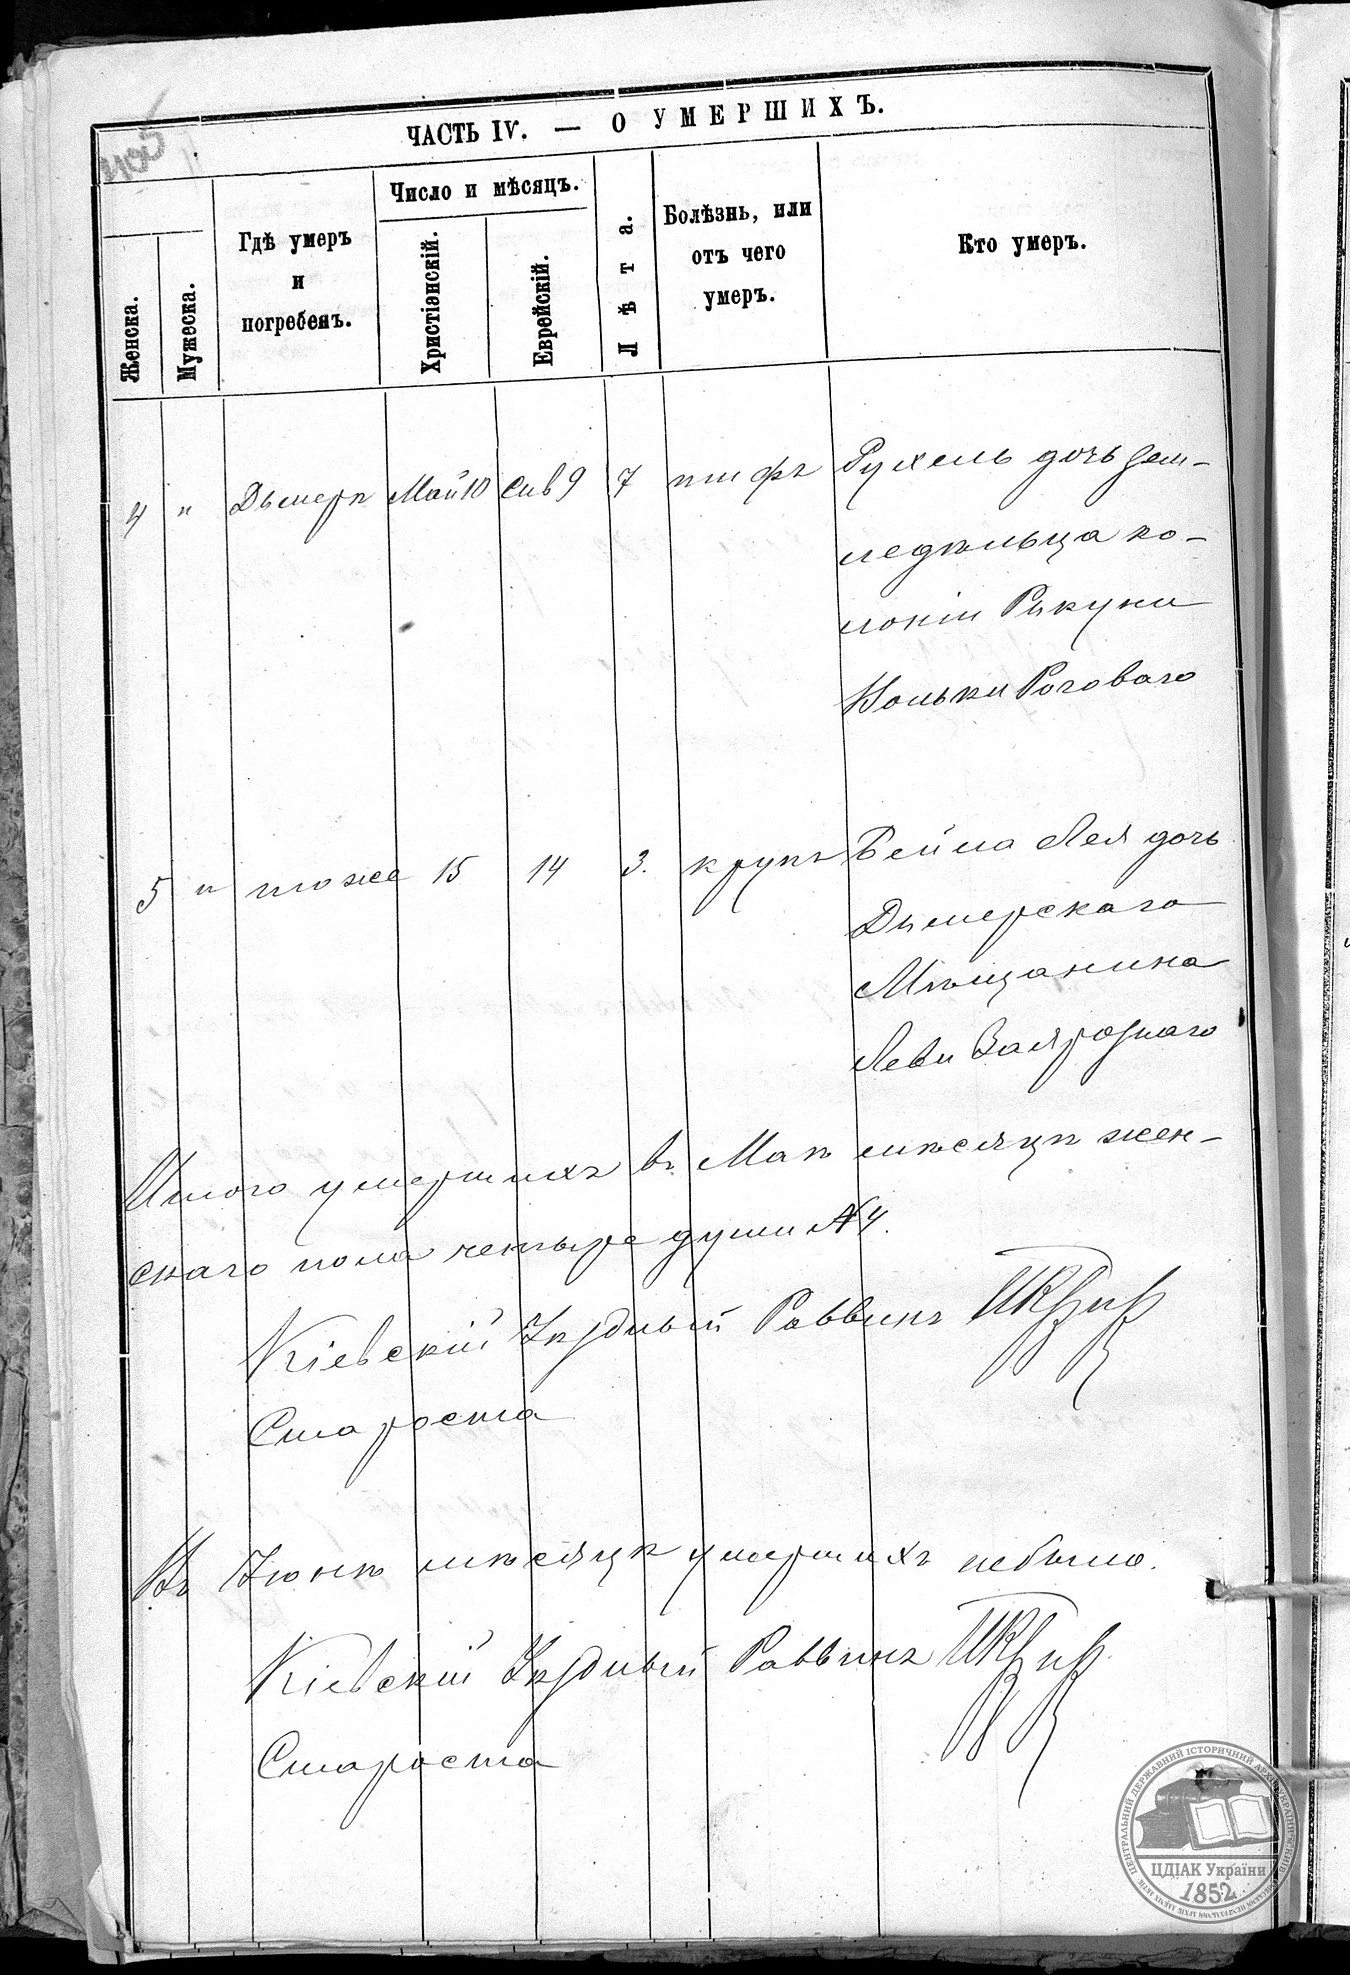 ЧАСТЬ IV. — О УМЕРШИХЪ.
Женска.
Мужеска.
Гдѣ умеръ
и
погребенъ.
Число и мѣсяцъ.
Христіанскій.
Еврейскій.
Лѣта.
Болѣзнь, или
отъ чего
умеръ.
Кто умеръ.
4 " Дымеръ Май 10 Сив 9 7 тифъ Рухель дочь зем-
ледѣльца ко-
лоніи Рыкуни
Иольки Роговаго
5 " тоже 15 14 3. крупъ Бейла Лея дочь
Дымерскаго
Мѣщанина
Леви
Итого умершихъ въ Маѣ мѣсяцѣ жен-
скаго пола четыре души №4.
Кіевскій Уѣздный Раввинъ
Староста
Въ Іюнѣ мѣсяцѣ умершихъ небыло.
Кіевскій Уѣздный Раввинъ
Староста
ЦЕНТРАЛЬНИЙ ДЕРЖАВНИЙ ІСТОРИЧНИЙ АРХІВ УКРАЇНИ, М. КИЇВ
ЦДІАК України
1852